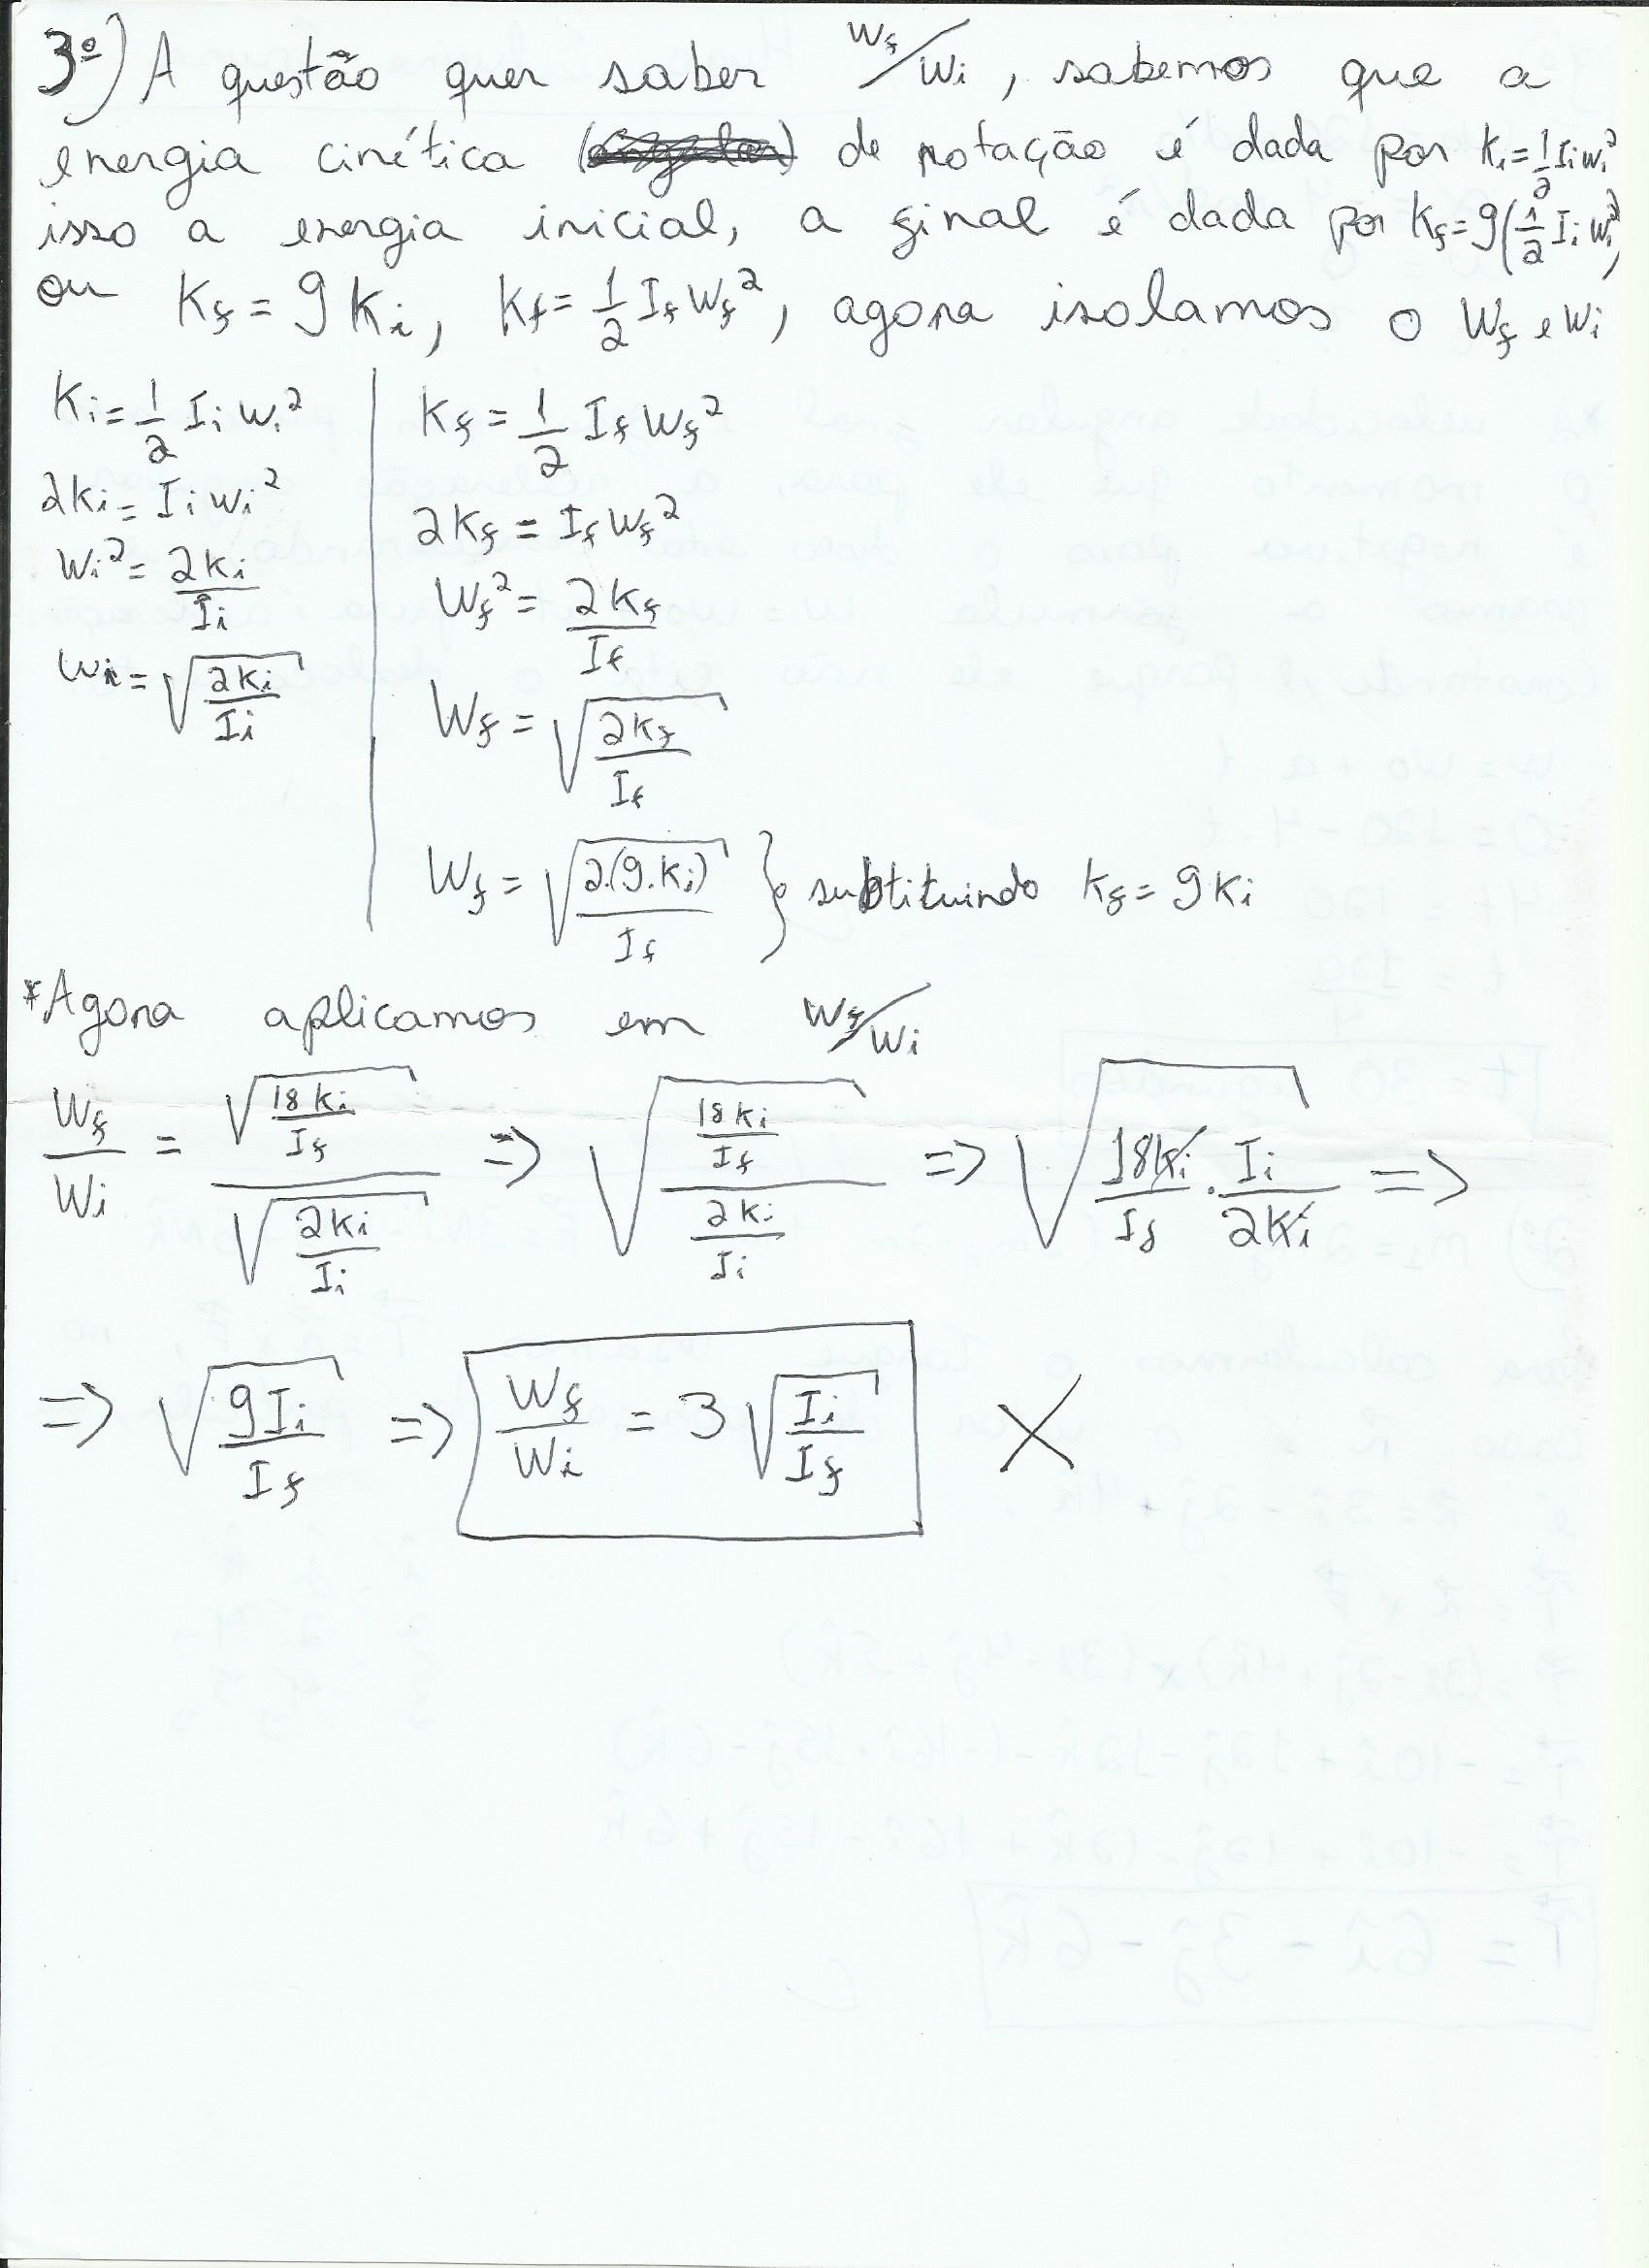 3º) A questão quer saber Wf/Wi, sabemos que a
energia cinética de rotação é dada por Ki=1/2 Ii wi²
isso a energia inicial, a final é dada por Kf=9(1/2 Ii wi²)
ou Kf = 9Ki, Kf=1/2 If Wf², agora isolamos o Wf e Wi
Ki=1/2 Ii wi²
2Ki= Ii wi²
Wi²= 2Ki/Ii
Wi=√(2Ki/Ii)
Kf=1/2 If Wf²
2Kf = If Wf²
Wf²= 2Kf/If
Wf = √(2Kf/If)
Wf = √(2.(9.Ki)/If) } substituindo Kf= 9Ki
*Agora aplicamos em Wf/Wi
Wf/Wi = √(18Ki/If)/√(2Ki/Ii) => √((18Ki/If)/(2Ki/Ii)) => √(18Ki/If . Ii/2Ki) =>
=> √(9Ii/If) => Wf/Wi = 3√(Ii/If) X